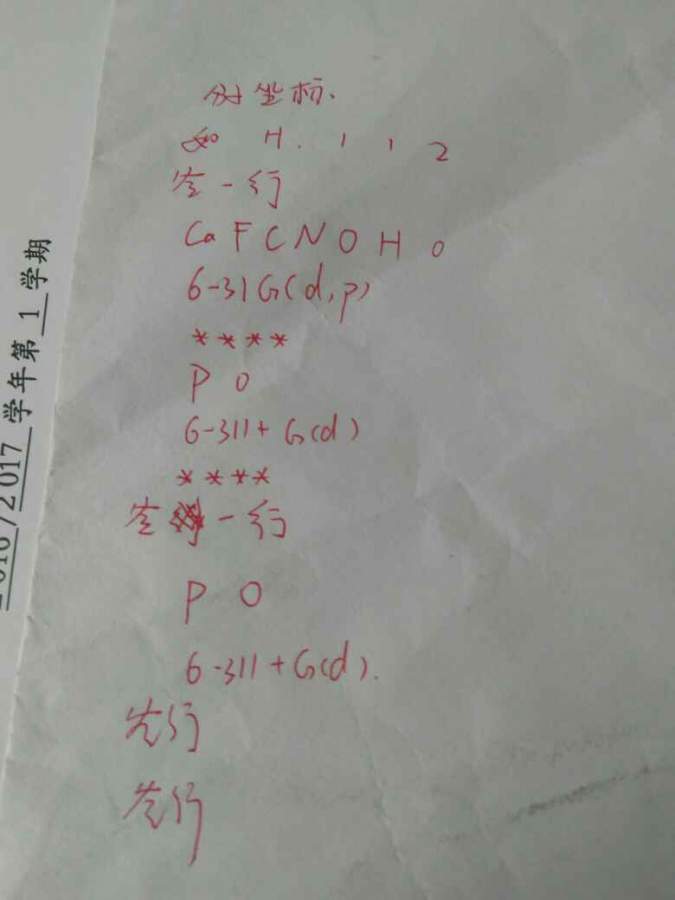 坐标.
如 H . 1 1 2
空一行
Ca F C N O H 0
6-31G(d,p)
****
P 0
6-311+G(d)
****
空一行
P 0
6-311+G(d).
空行
空行
/2017 学年第 1 学期